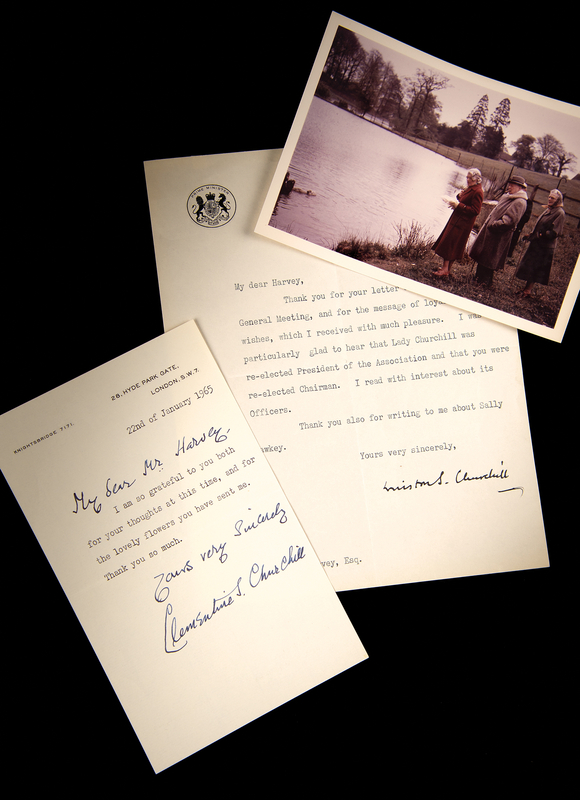 PRIME MINISTER
My dear Harvey,
Thank you for your letter
General Meeting, and for the message of
wishes, which I received with much pleasure. I
particularly glad to hear that Lady Churchill was
re-elected President of the Association and that you were
re-elected Chairman. I read with interest about its
Officers.
Thank you also for writing to me about Sally
Yours very sincerely,
Winston S. Churchill
Esq.
28, HYDE PARK GATE,
LONDON, S.W.7.
KNIGHTSBRIDGE 7171
22nd of January 1965
My dear Mr. Harvey,
I am so grateful to you both
for your thoughts at this time, and for
the lovely flowers you have sent me.
Thank you so much.
Yours very sincerely
Clementine S. Churchill